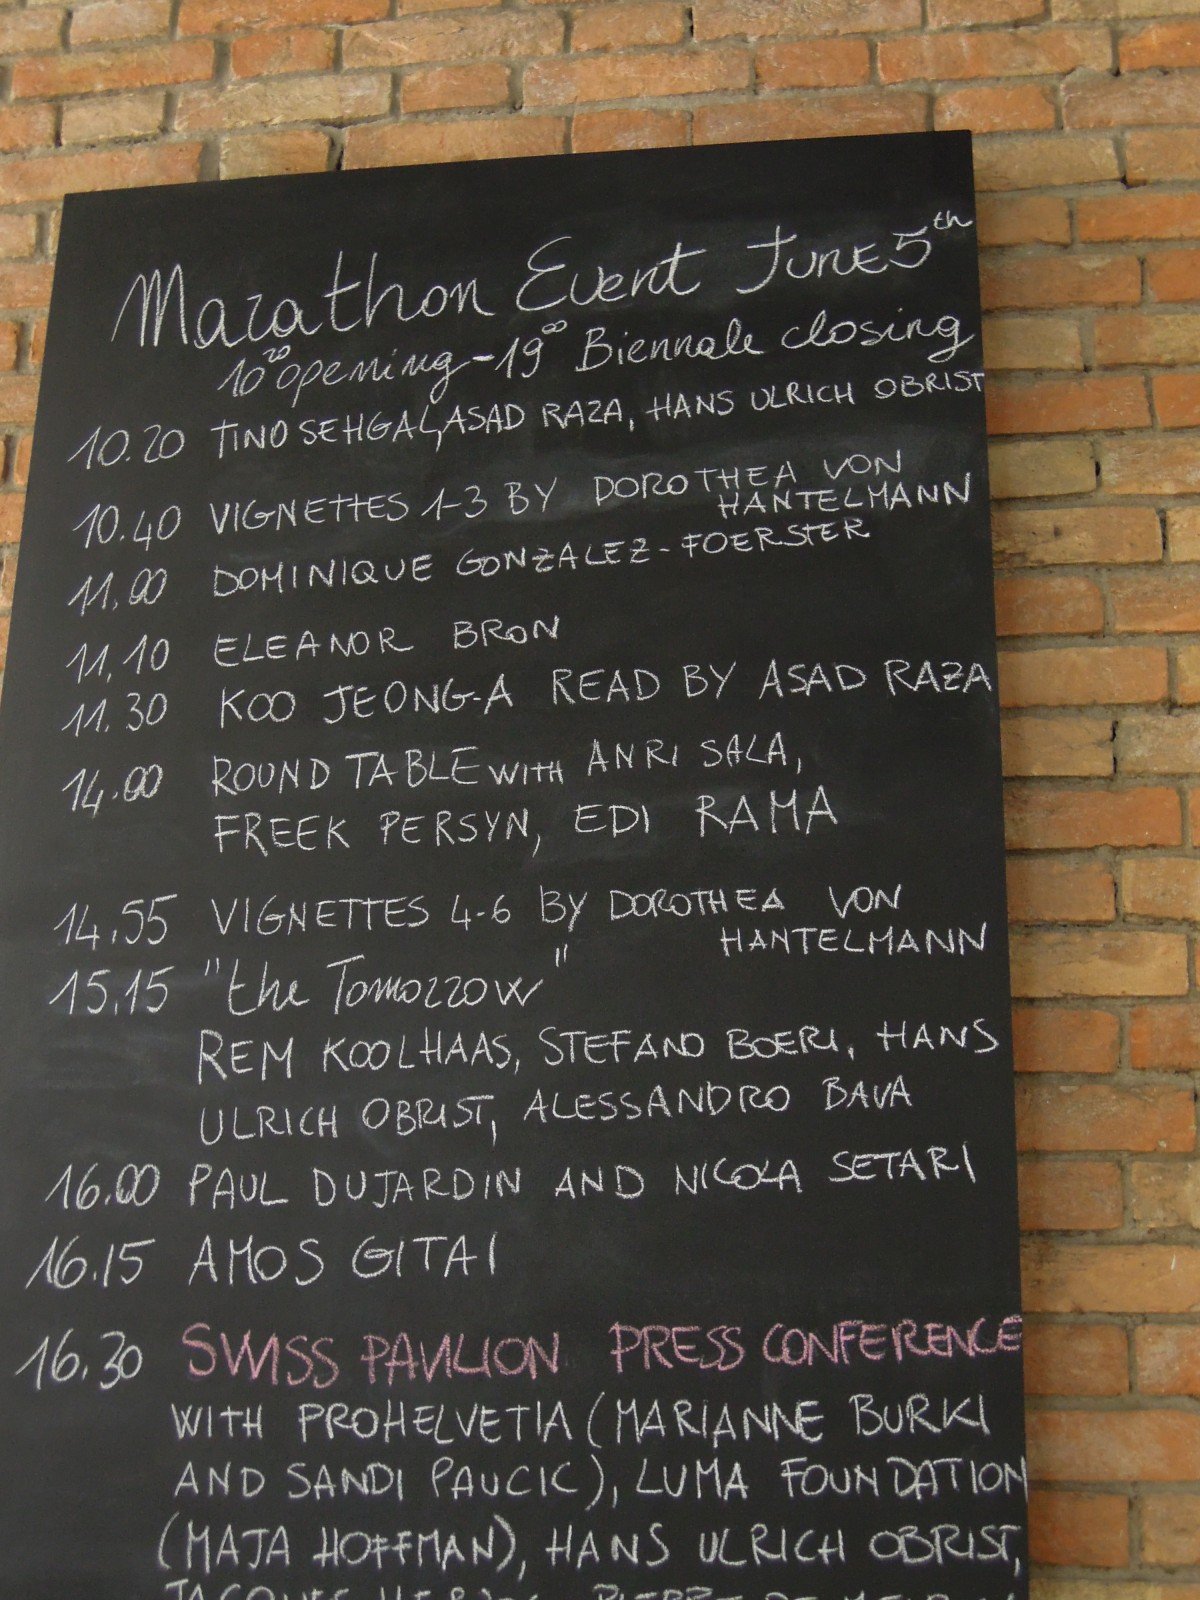 Marathon Event JUNE 5th
10 20 opening - 19 00 Biennale closing
10.20 TINO SEHGAL, ASAD RAZA, HANS ULRICH OBRIST
10.40 VIGNETTES 1-3 BY DOROTHEA VON
HANTELMANN
11.00 DOMINIQUE GONZALEZ-FOERSTER
11.10 ELEANOR BRON
11.30 KOO JEONG-A READ BY ASAD RAZA
14.00 ROUND TABLE WITH ANRI SALA,
FREEK PERSYN, EDI RAMA
14.55 VIGNETTES 4-6 BY DOROTHEA VON
HANTELMANN
15.15 "the Tomorrow"
REM KOOLHAAS, STEFANO BOERI, HANS
ULRICH OBRIST, ALESSANDRO BAVA
16.00 PAUL DUJARDIN AND NICOLA SETARI
16.15 AMOS GITAI
16.30 SWISS PAVILION PRESS CONFERENCE
WITH PROHELVETIA (MARIANNE BURKI
AND SANDI PAUCIC), LUMA FOUNDATION
(MAJA HOFFMAN), HANS ULRICH OBRIST,
JACQUES HERZOG, PIERRE DE MEURON